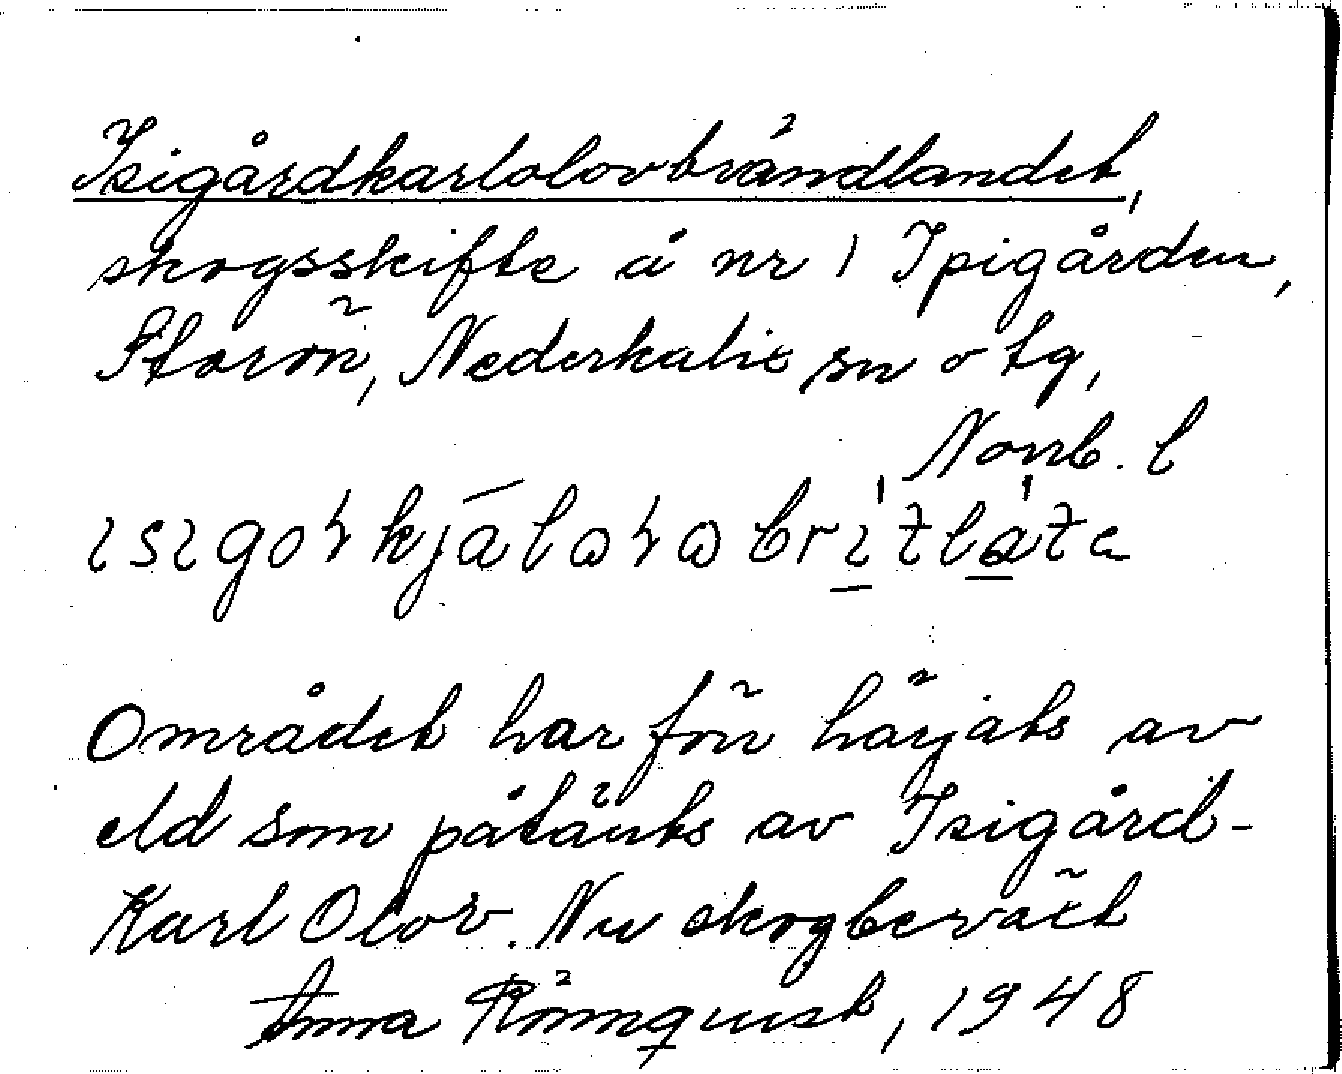 Isigårdkarlolovbrändlandet,
skogsskifte å nr 1 Ipigården,
Storön, Nederkalix sn o tg,
Norrb. l
Området har förr härjats av
eld som påtänts av Isigård-
Karl Olov. Nu skogbeväxt
Anna Rönnquist, 1948